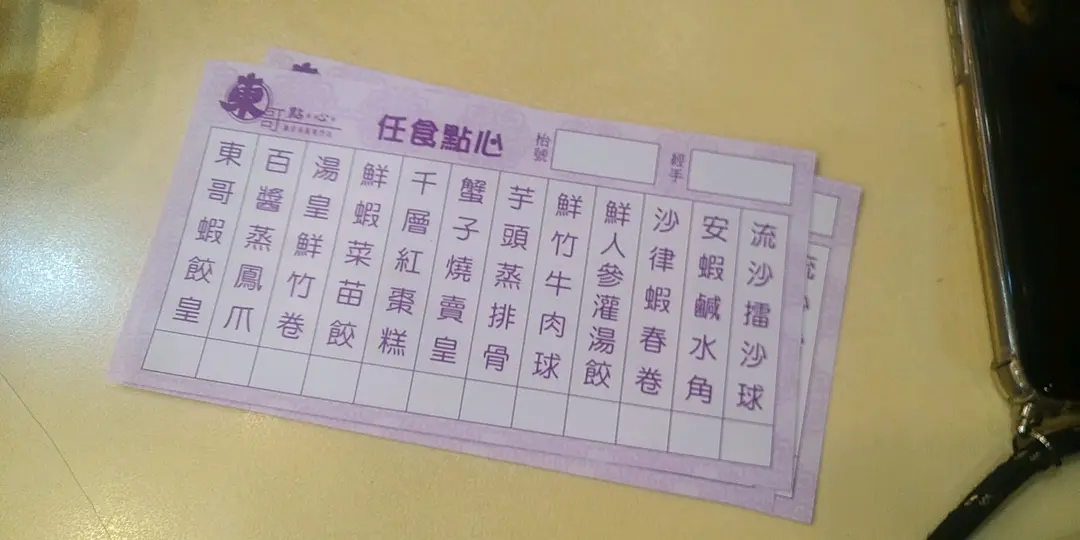 東哥
點心
任食點心
枱號
經手
東哥蝦餃皇
百醬蒸鳳爪
湯皇鮮竹卷
鮮蝦菜苗餃
千層紅棗糕
蟹子燒賣皇
芋頭蒸排骨
鮮竹牛肉球
鮮人參灌湯餃
沙律蝦春卷
安蝦鹹水角
流沙擂沙球